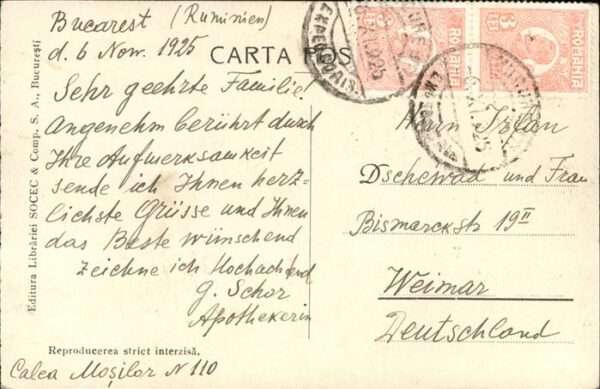 Bucarest (Rumänien)
d. 6 Nov. 1925
CARTA POS
Sehr geehrte Familie!
Angenehm berührt durch
Ihre Aufmerksamkeit
sende ich Ihnen herz=
lichste Grüsse und Ihnen
das Beste wünschend
zeichne ich Hochachtend
G. Schor
Apothekerin
Calea Moșilor N 110
Editura Librăriei SOCEC & Comp. S. A., București
Reproducerea strict interzisă.
3 LEI
ROMANIA
3 LEI
ROMANIA
Dschewad und Frau
Bismarckstr 19II
Weimar
Deutschland